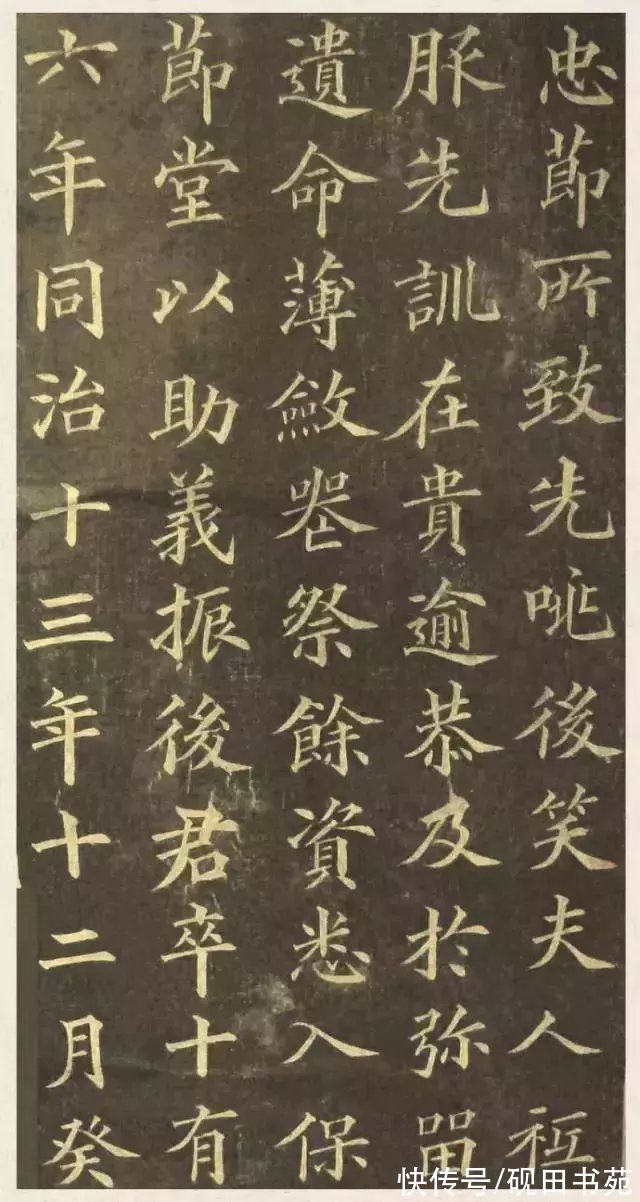 忠莭所致先咷後笑夫人祗
服先訓在貴逾恭及於弥畱
遺命薄斂喪祭餘資悉入保
莭堂以助義振後君卒十有
六年同治十三年十二月癸
快传号/砚田书苑